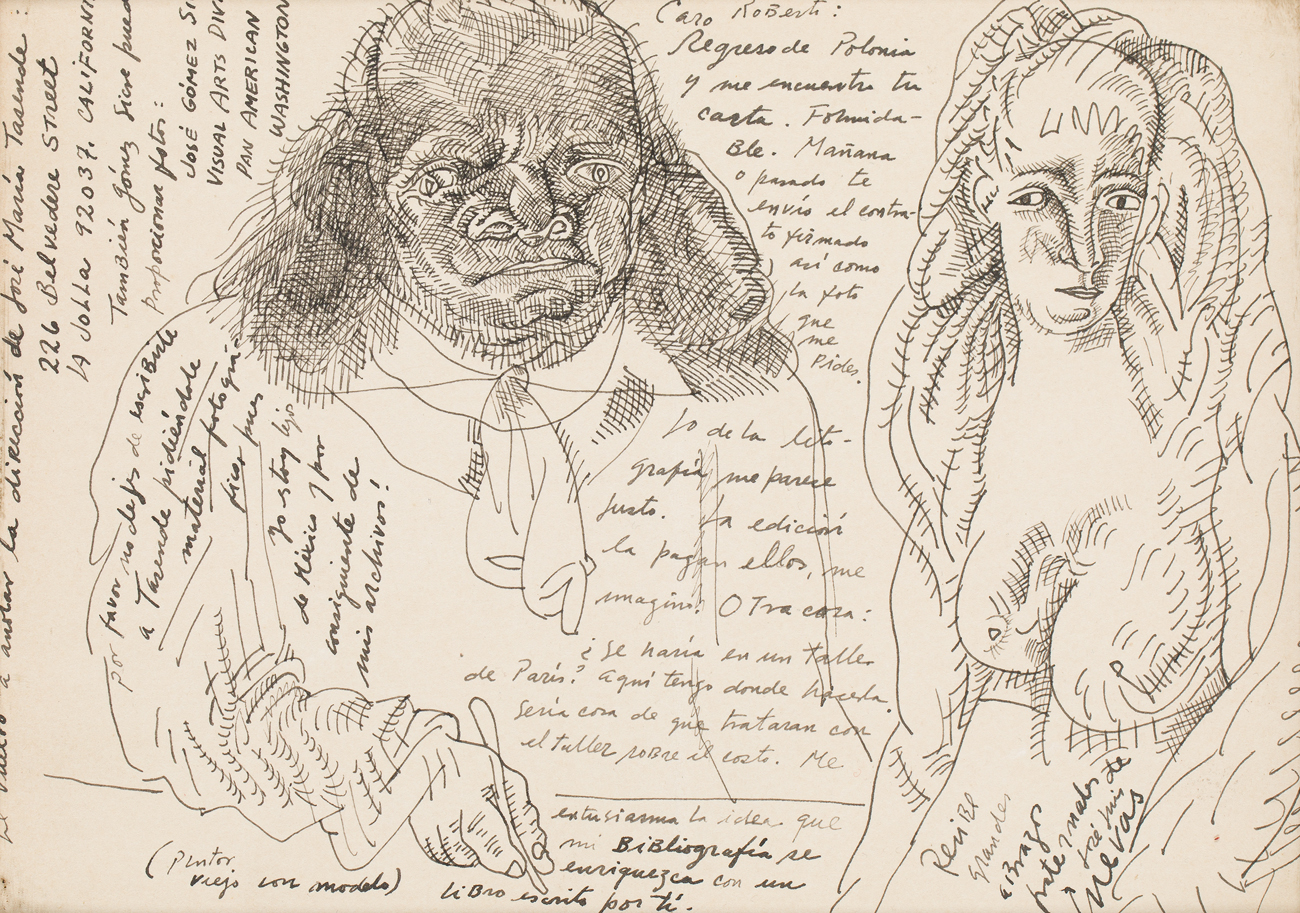 Caro Roberti:
Regreso de Polonia
y me encuentro tu
carta. Formida-
Ble. Mañana
o pasado te
envio el contra-
to firmado
así como
la foto
que
me
Pides.
Lo de la lito-
grafía me parece
Justo. La edición
la pagan ellos, me
imagino. Otra cosa:
¿Se haría en un taller
de París? Aquí tengo donde hacerla.
Sería cosa de que trataran con
el taller sobre el costo. Me
entusiasma la idea que
mi BiBliografía se
enriquezca con un
liBro escrito por tí.
ReciBe
grandes
aBrazos
fraternales de
José Luis
nevas
(Pintor
viejo con modelo)
vuelvo a anotar la dirección de José María Tasende:
226 Belvedere Street
LA Jolla 92037. CALIFORNI
También Gómez Sicre pued
Proporcionar fotos:
JOSÉ GÓMEZ SI
VISUAL ARTS DIV
PAN AMERICAN
WASHINGTON
Por favor no dejes de escribirle
a Tasende pidiéndole
material fotográ-
fico pues
yo estoy lejos
de México y por
consiguiente de
mis archivos!